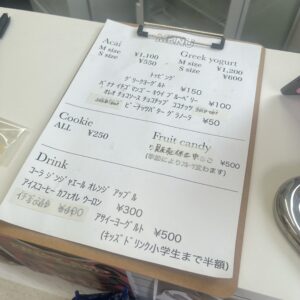 MENU
Acai
M size ¥1,100
S size ¥550
Greek yogurt
M size ¥1,200
S size ¥600
トッピング
グリークヨーグルト ¥150
バナナ イチゴ マンゴー キウイ ブルーベリー ¥100
オレオ チョコソース チョコチップ ココナッツ
ピーナッツバター グラノーラ ¥50
Cookie
ALL ¥250
Fruit candy
¥500
(季節によりフルーツ変わります)
Drink
コーラ ジンジャエール オレンジ アップル
アイスコーヒー カフェオレ ウーロン ¥300
アサイーヨーグルト ¥500
(キッズドリンク小学生まで半額)